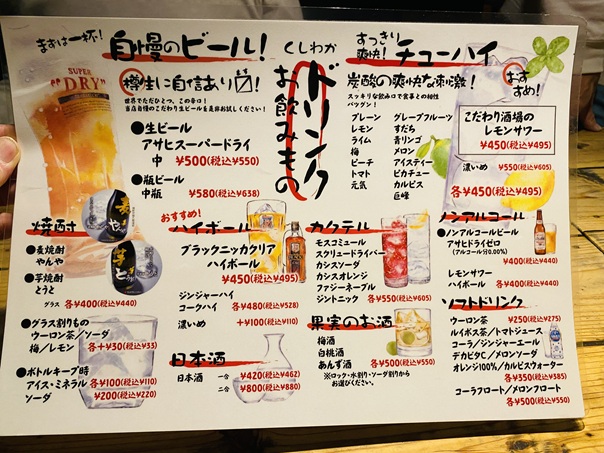 まずは一杯!
自慢のビール!
SUPER
"DRY"
樽生に自信あり〼!
世界でただひとつ、この辛口!
当店自慢のこだわり生ビールを是非お試しください!
●生ビール
アサヒスーパードライ
中 ¥500(税込¥550)
●瓶ビール
中瓶 ¥580(税込¥638)
くしわか
ドリンク
お飲みもの
すっきり
爽快!
チューハイ
炭酸の爽快な刺激!
スッキリな飲み口で食事との相性
バツグン!
おすすめ!
プレーン
レモン
ライム
梅
ピーチ
トマト
元気
グレープフルーツ
すだち
青リンゴ
メロン
アイスティー
ピカチュー
カルピス
巨峰
各¥450(税込¥495)
こだわり酒場の
レモンサワー
¥450(税込¥495)
濃いめ ¥550(税込¥605)
焼酎
●麦焼酎
やんや
●芋焼酎
とうと
グラス 各¥400(税込¥440)
●グラス割りもの
ウーロン茶/ソーダ
梅/レモン 各+¥30(税込¥33)
●ボトルキープ時
アイス・ミネラル 各¥100(税込¥110)
ソーダ ¥200(税込¥220)
おすすめ!
ハイボール
ブラックニッカクリア
ハイボール
¥450(税込¥495)
ジンジャーハイ
コークハイ 各¥480(税込¥528)
濃いめ +¥100(税込¥110)
日本酒
日本酒 一合 ¥420(税込¥462)
二合 ¥800(税込¥880)
カクテル
モスコミュール
スクリュードライバー
カシスソーダ
カシスオレンジ
ファジーネーブル
ジントニック 各¥550(税込¥605)
果実のお酒
梅酒
白桃酒
あんず酒 各¥500(税込¥550)
※ロック・水割り・ソーダ割りから
お選びください。
ノンアルコール
●ノンアルコールビール
アサヒドライゼロ
(アルコール分0.00%)
¥400(税込¥440)
レモンサワー
ハイボール 各¥400(税込¥440)
ソフトドリンク
ウーロン茶 ¥250(税込¥275)
ルイボス茶/トマトジュース
コーラ/ジンジャーエール
デカビタC/メロンソーダ
オレンジ100%/カルピスウォーター
各¥350(税込¥385)
コーラフロート/メロンフロート
各¥500(税込¥550)